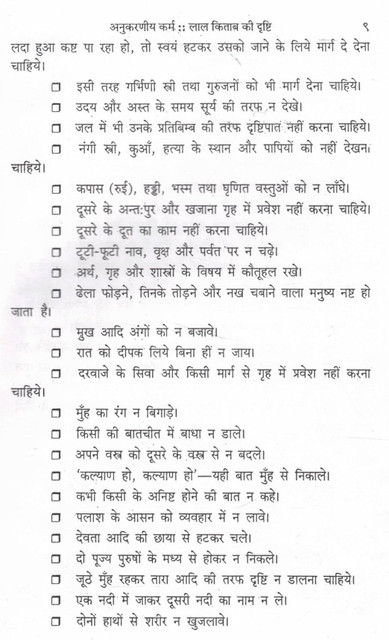 अनुकरणीय कर्म :: लाल किताब की दृष्टि ९
लदा हुआ कष्ट पा रहा हो, तो स्वयं हटकर उसको जाने के लिये मार्ग दे देना
चाहिये।
❒ इसी तरह गर्भिणी स्त्री तथा गुरुजनों को भी मार्ग देना चाहिये।
❒ उदय और अस्त के समय सूर्य की तरफ न देखे।
❒ जल में भी उनके प्रतिबिम्ब की तरफ दृष्टिपात नहीं करना चाहिये।
❒ नंगी स्त्री, कुआँ, हत्या के स्थान और पापियों को नहीं देखना
चाहिये।
❒ कपास (रुई), हड्डी, भस्म तथा घृणित वस्तुओं को न लाँघे।
❒ दूसरे के अन्त:पुर और खजाना गृह में प्रवेश नहीं करना चाहिये।
❒ दूसरे के दूत का काम नहीं करना चाहिये।
❒ टूटी-फूटी नाव, वृक्ष और पर्वत पर न चढ़े।
❒ अर्थ, गृह और शास्त्रों के विषय में कौतूहल रखे।
❒ ढेला फोड़ने, तिनके तोड़ने और नख चबाने वाला मनुष्य नष्ट हो
जाता है।
❒ मुख आदि अंगों को न बजावे।
❒ रात को दीपक लिये बिना हीं न जाय।
❒ दरवाजे के सिवा और किसी मार्ग से गृह में प्रवेश नहीं करना
चाहिये।
❒ मुँह का रंग न बिगाड़े।
❒ किसी की बातचीत में बाधा न डाले।
❒ अपने वस्त्र को दूसरे के वस्त्र से न बदले।
❒ ‘कल्याण हो, कल्याण हो’—यही बात मुँह से निकाले।
❒ कभी किसी के अनिष्ट होने की बात न कहे।
❒ पलाश के आसन को व्यवहार में न लावे।
❒ देवता आदि की छाया से हटकर चले।
❒ दो पूज्य पुरुषों के मध्य से होकर न निकले।
❒ जूठे मुँह रहकर तारा आदि की तरफ दृष्टि न डालना चाहिये।
❒ एक नदी में जाकर दूसरी नदी का नाम न ले।
❒ दोनों हाथों से शरीर न खुजलावे।